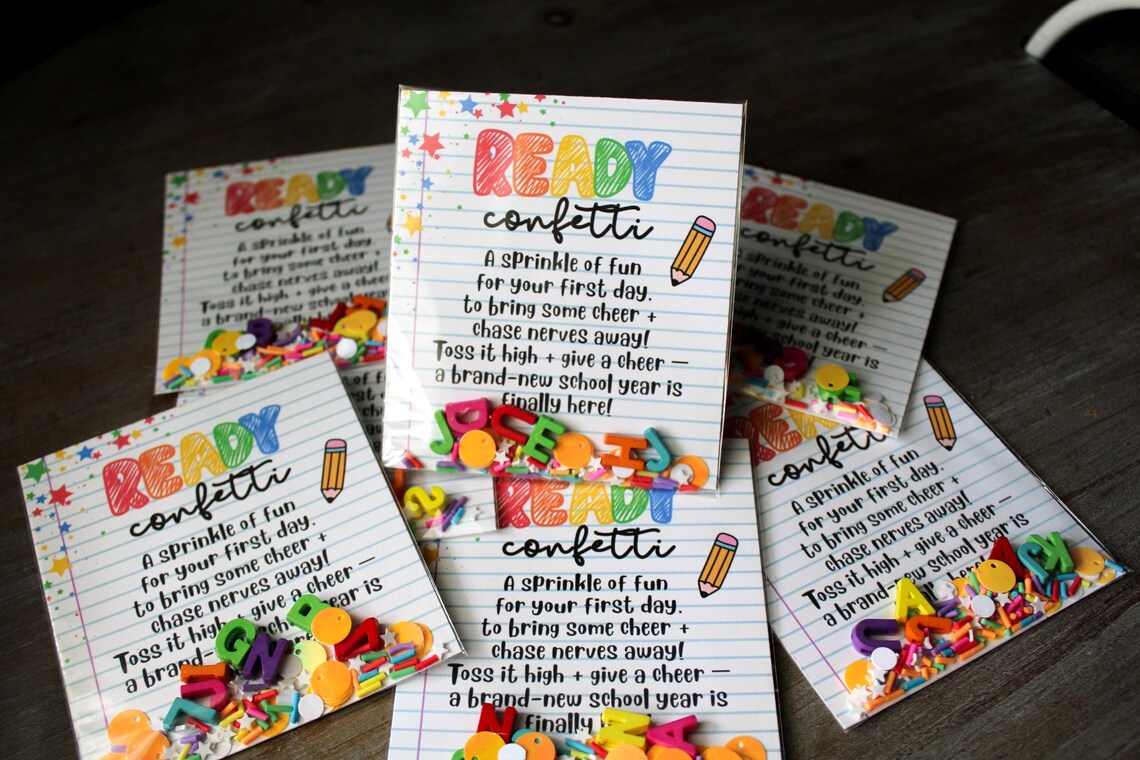 READY
confetti
A sprinkle of fun
for your first day.
to bring some cheer +
chase nerves away!
Toss it high + give a cheer —
a brand-new school year is
finally here!
READY
confetti
A sprinkle of fun
for your first day.
to bring some cheer +
chase nerves away!
Toss it high + give a cheer
a brand-new school
READY
confetti
A sprinkle of fun
for your first day.
to bring some cheer +
chase nerves away!
Toss it high + give a cheer —
year is
READY
confetti
A sprinkle of fun
for your first day.
to bring some cheer +
chase nerves away!
Toss it high + give a cheer —
a brand-new school year is
READY
confetti
A sprinkle of fun
for your first day.
to bring some cheer +
chase nerves away!
Toss it high + give a cheer —
a brand-new school year is
finally
READY
confetti
A sprinkle of fun
for your first day.
to bring some cheer +
chase nerves away!
Toss it high + give a cheer —
a brand-new school year is